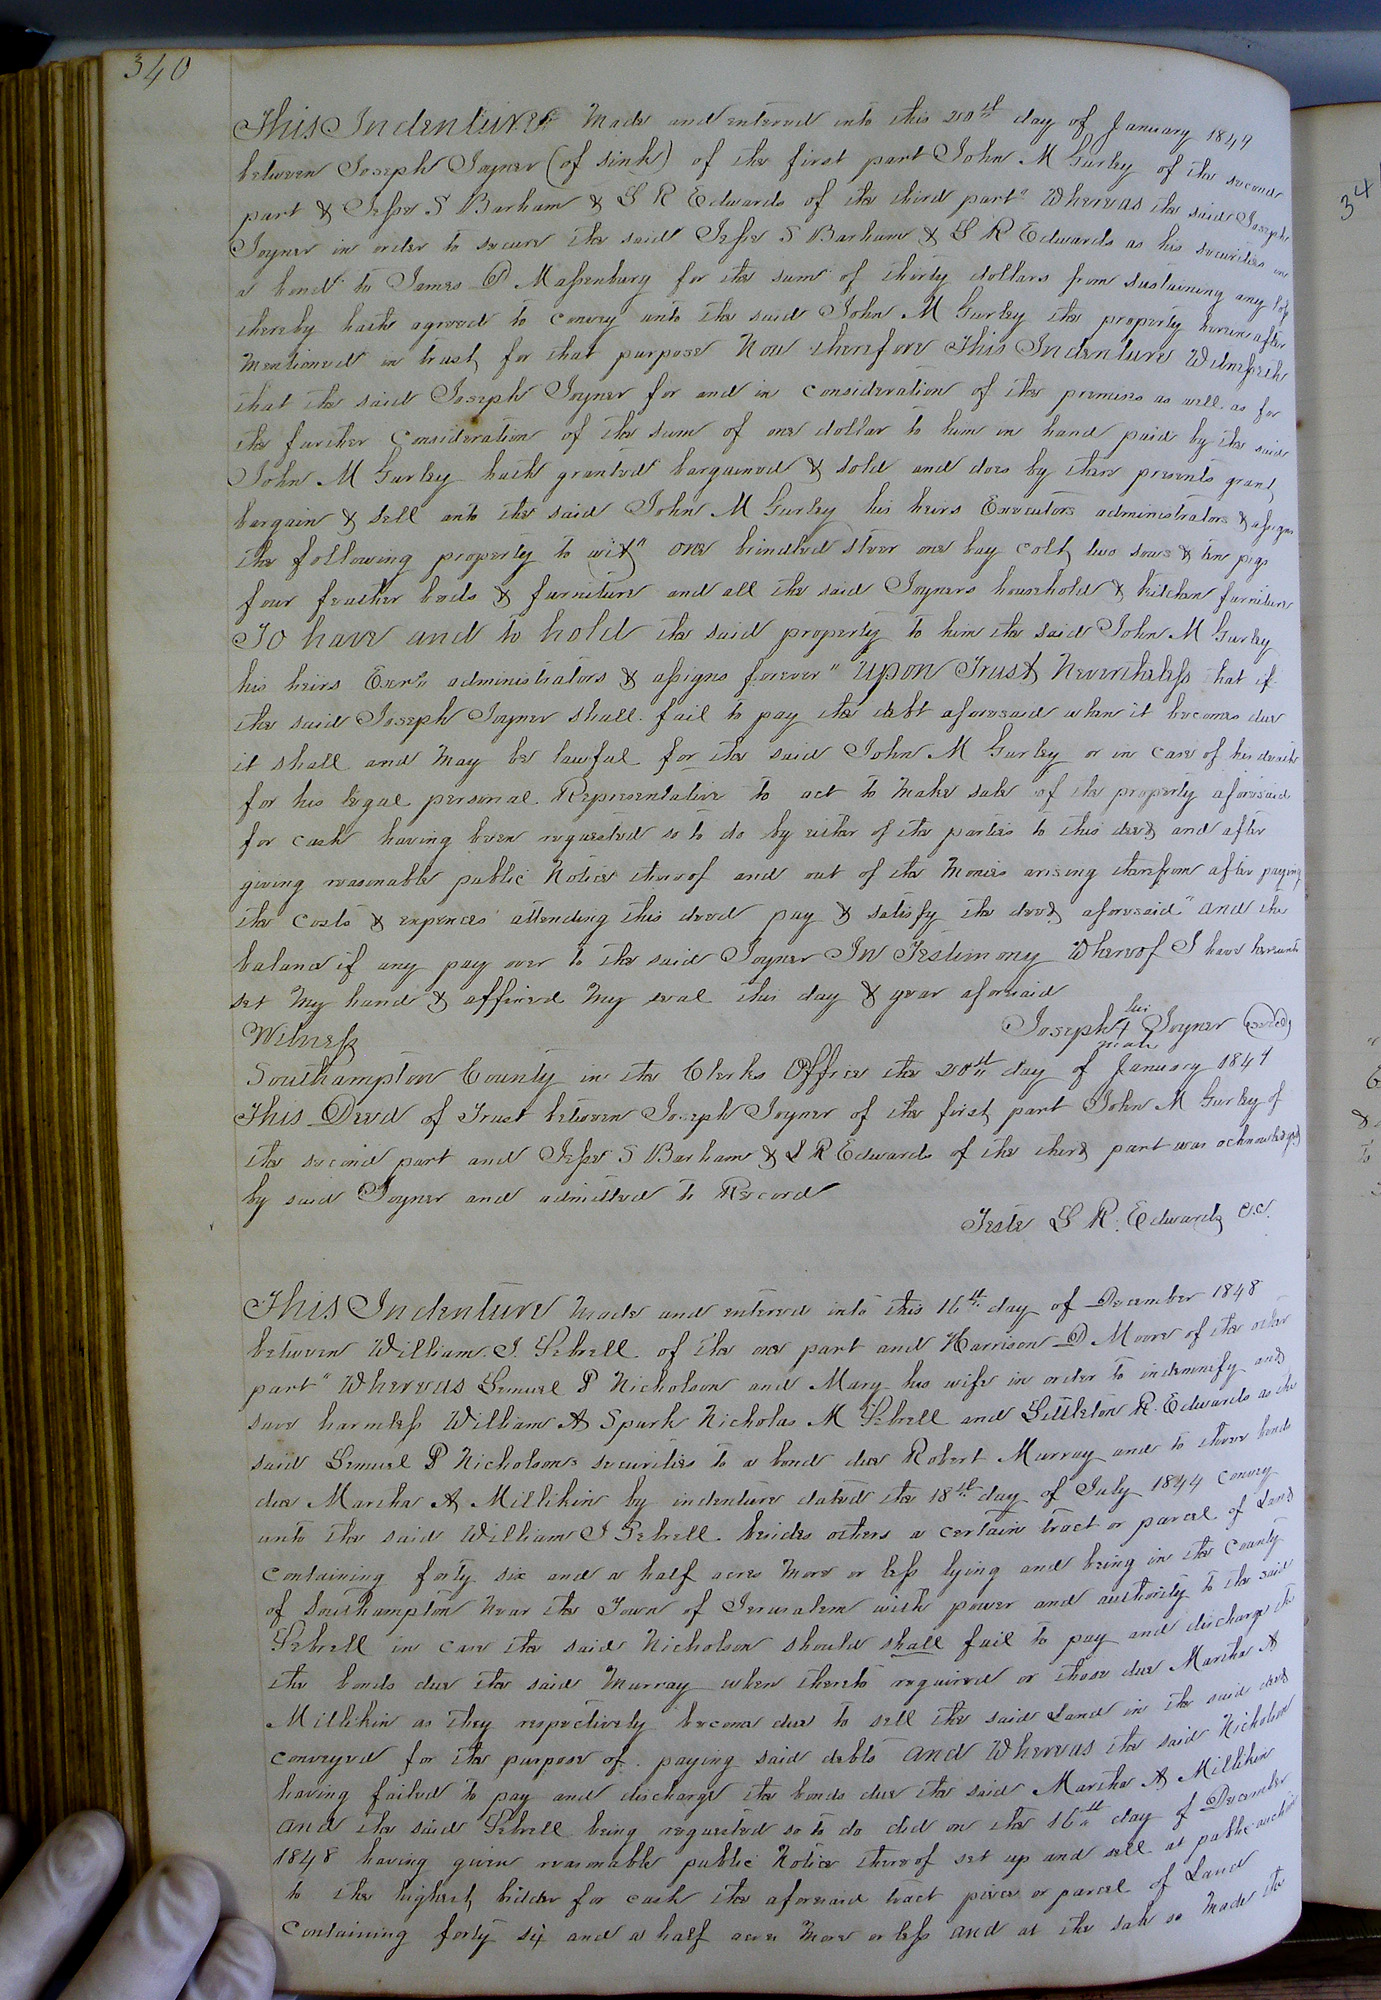 340
This Indenture Made and entered into this 20th day of January 1849
between Joseph Joyner (of sink) of the first part John M Gurley of the second
part & Jesse S Barham & L R Edwards of the third part" Whereas the said Joseph
Joyner in order to secure the said Jesse S Barham & L R Edwards as his securities in
a bond to James D Massenburg for the sum of thirty dollars from sustaining any loss
thereby hath agreed to convey unto the said John M Gurley the property hereinafter
Mentioned in trust for that purpose Now therefore This Indenture Witnesseth
that the said Joseph Joyner for and in consideration of the premises as well as for
the further Consideration of the sum of one dollar to him in hand paid by the said
John M Gurley hath granted bargained & sold and does by these presents grant
bargain & sell unto the said John M Gurley his heirs Executors administrators & assigns
the following property to wit" one brindled steer one bay colt two sows & ten pigs
four feather beds & furniture and all the said Joyners household & kitchen furniture
To have and to hold the said property to him the said John M Gurley
his heirs Exers administrators & assigns forever" Upon Trust Nevertheless that if
the said Joseph Joyner shall fail to pay the debt aforesaid when it becomes due
it shall and May be lawful for the said John M Gurley or in case of his death
for his legal personal Representative to act to Make sale of the property aforesaid
for cash having been requested so to do by either of the parties to this deed and after
giving reasonable public Notice thereof and out of the Monies arising therefrom after paying
the costs & expences attending this deed pay & satisfy the deed aforesaid" and the
baland if any pay over to the said Joyner In Testimony Whereof I have hereunto
set My hand & affixed My seal this day & year aforesaid
his
Witness Joseph + Joyner (seal)
mark
Southampton County in the Clerks Office the 20th day of January 1849
This Deed of Trust between Joseph Joyner of the first part John M Gurley of
the second part and Jesse S Barham & L R Edwards of the third part was acknowledged
by said Joyner and admitted to Record
Teste L R. Edwards C.C.
This Indenture Made and entered into this 16th day of December 1848
between William J. Sebrell of the one part and Harrison D Moore of the other
part" Whereas Lemuel P Nicholson and Mary his wife in order to indemnify and
save harmless William A Spark Nicholas M Sebrell and Littleton R. Edwards as the
said Lemuel P Nicholsons securities to a bond due Robert Murray and to three bonds
due Martha A Millikin by indenture dated the 18th day of July 1844 convey
unto the said William J Sebrell besides others a certain tract or parcel of Land
containing forty six and a half acres More or less lying and being in the County
of Southampton Near the Town of Jerusalem with power and authority to the said
Sebrell in case the said Nicholson should shall fail to pay and discharge the
the bonds due the said Murray when thereto required or those due Martha A
Millikin as they respectively become due to sell the said Land in the said deed
conveyed for the purpose of paying said debts and Whereas the said Nicholson
having failed to pay and discharge the bonds due the said Martha A Millikin
and the said Sebrell being requested so to do did on the 16th day of December
1848 having given reasonable public Notice thereof set up and sell at public auction
to the highest bidder for cash the aforesaid tract piece or parcel of Land
Containing forty six and a half acres More or less and at the sale so Made the